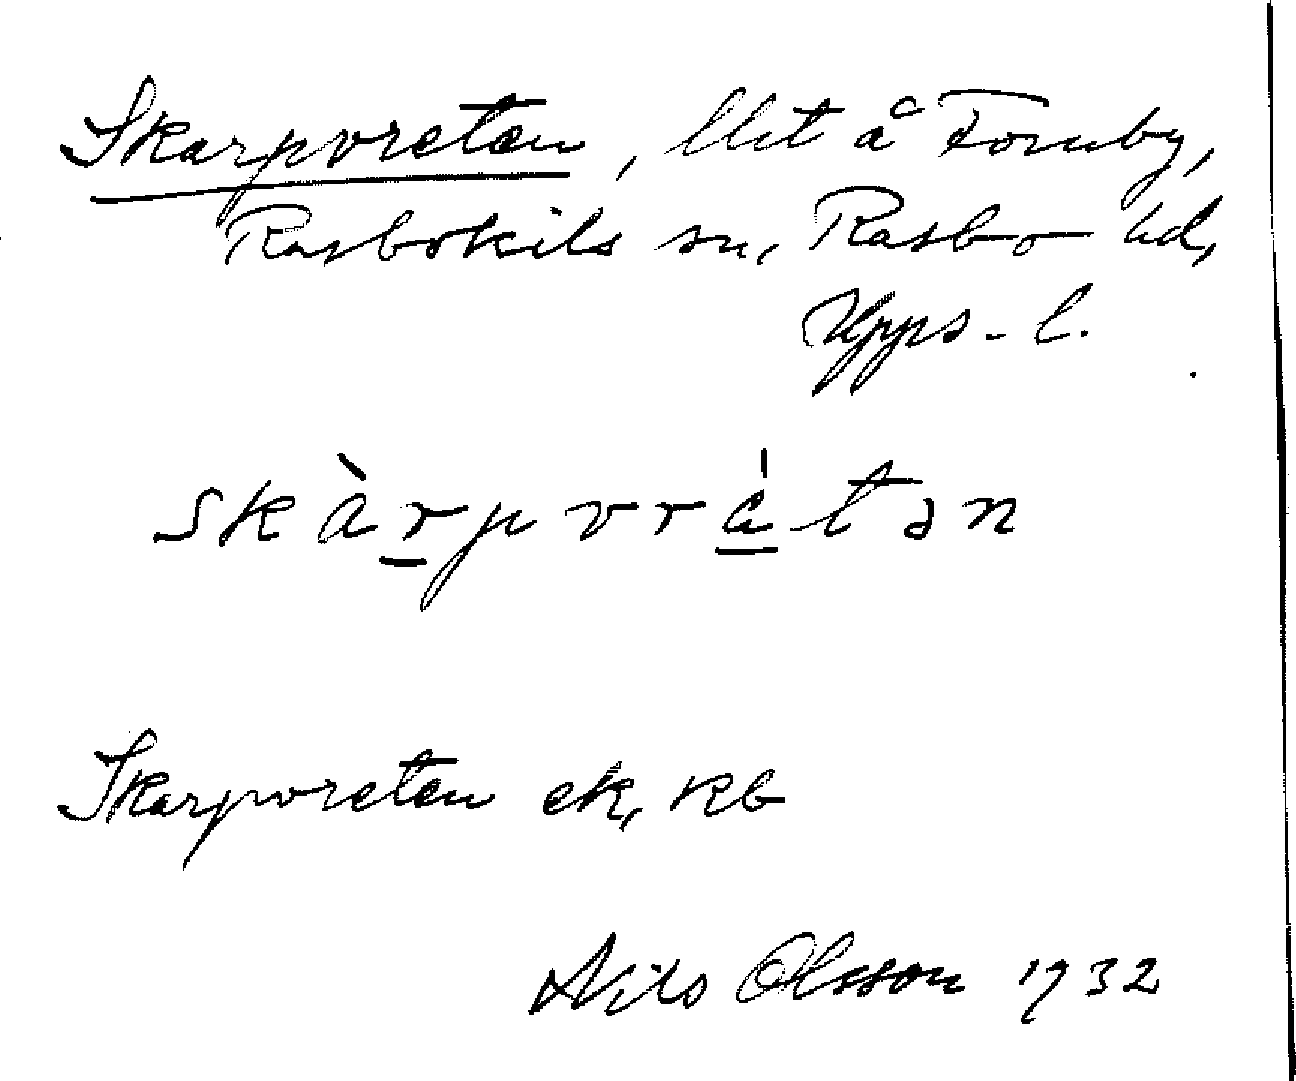 Skarpvreten, llet å Fornby,
Rasbokils sn, Rasbo hd,
Upps-l.
skàrpvrátən
Skarpvreten ek, kb
Nils Olsson 1932